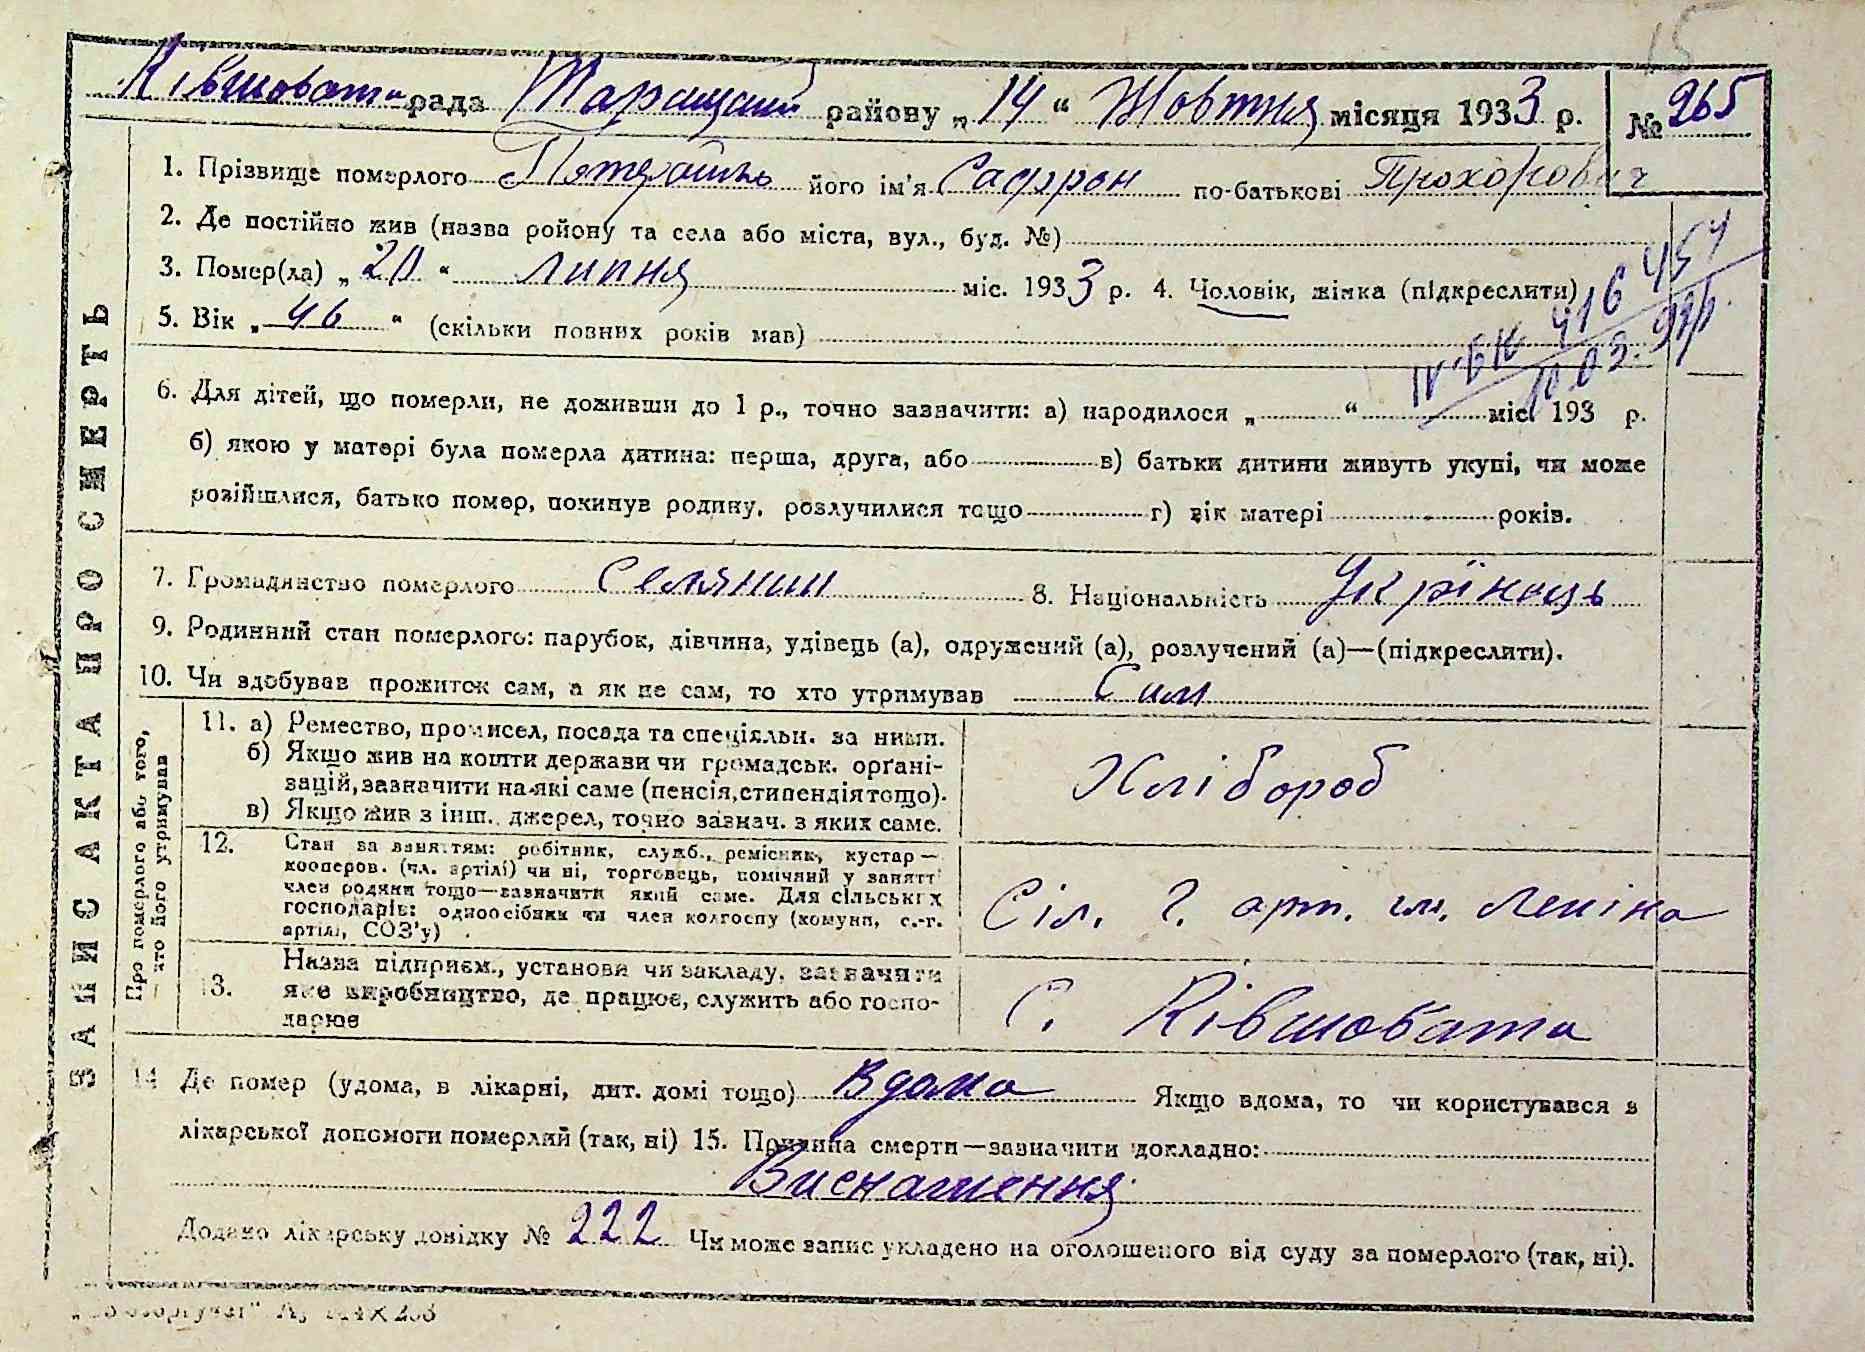 15
Ківшовати рада Таращан району „14“ Жовтня місяця 1933 р. № 265
1. Прізвище померлого його ім'я Сафрон по-батькові Прохорович
2. Де постійно жив (назва ройону та села або міста, вул., буд. №)
3. Помер(ла) „20“ липня міс. 1933 р. 4. Чоловік, жінка (підкреслити)
5. Вік „46“ (скільки повних років мав)
6. Для дітей, що померли, не доживши до 1 р., точно зазначити: а) народилося „ “ міс. 193 р.
б) якою у матері була померла дитина: перша, друга, або в) батьки дитини живуть укупі, чи може
розійшлися, батько помер, покинув родину, розлучилися тощо г) вік матері років.
7. Громадянство померлого Селянин 8. Національність Украінець
9. Родинний стан померлого: парубок, дівчина, удівець (а), одружений (а), розлучений (а)—(підкреслити).
10. Чи здобував прожиток сам, а як не сам, то хто утримував Сам
ЗАПИС АКТА ПРО СМЕРТЬ
Про померлого або того,
хто його утримував
11. а) Ремество, промисел, посада та спеціяльн. за ними.
б) Якщо жив на кошти держави чи громадськ. орґані-
зацій, зазначити на які саме (пенсія, стипендія тощо).
в) Якщо жив з інш. джерел, точно зазнач. з яких саме.
Хлібороб
12. Стан за заняттям: робітник, служб., ремісник, кустар—
кооперов. (чл. артілі) чи ні, торговець, помічний у занятті
член родини тощо—зазначити який саме. Для сільських
господарів: одноосібник чи член колгоспу (комуни, с.-г.
артілі, СОЗ'у).
Сіл. г. арт. ім. Леніна
13. Назва підприєм., установи чи закладу, зазначити
яке виробництво, де працює, служить або госпо-
дарює
С. Ківшовата
14 Де помер (удома, в лікарні, дит. домі тощо) Вдома Якщо вдома, то чи користувався з
лікарської допомоги померлий (так, ні) 15. Причина смерти—зазначити докладно:
Виснаження
Додано лікарську довідку № 222 Чи може запис укладено на оголошеного від суду за померлого (так, ні).